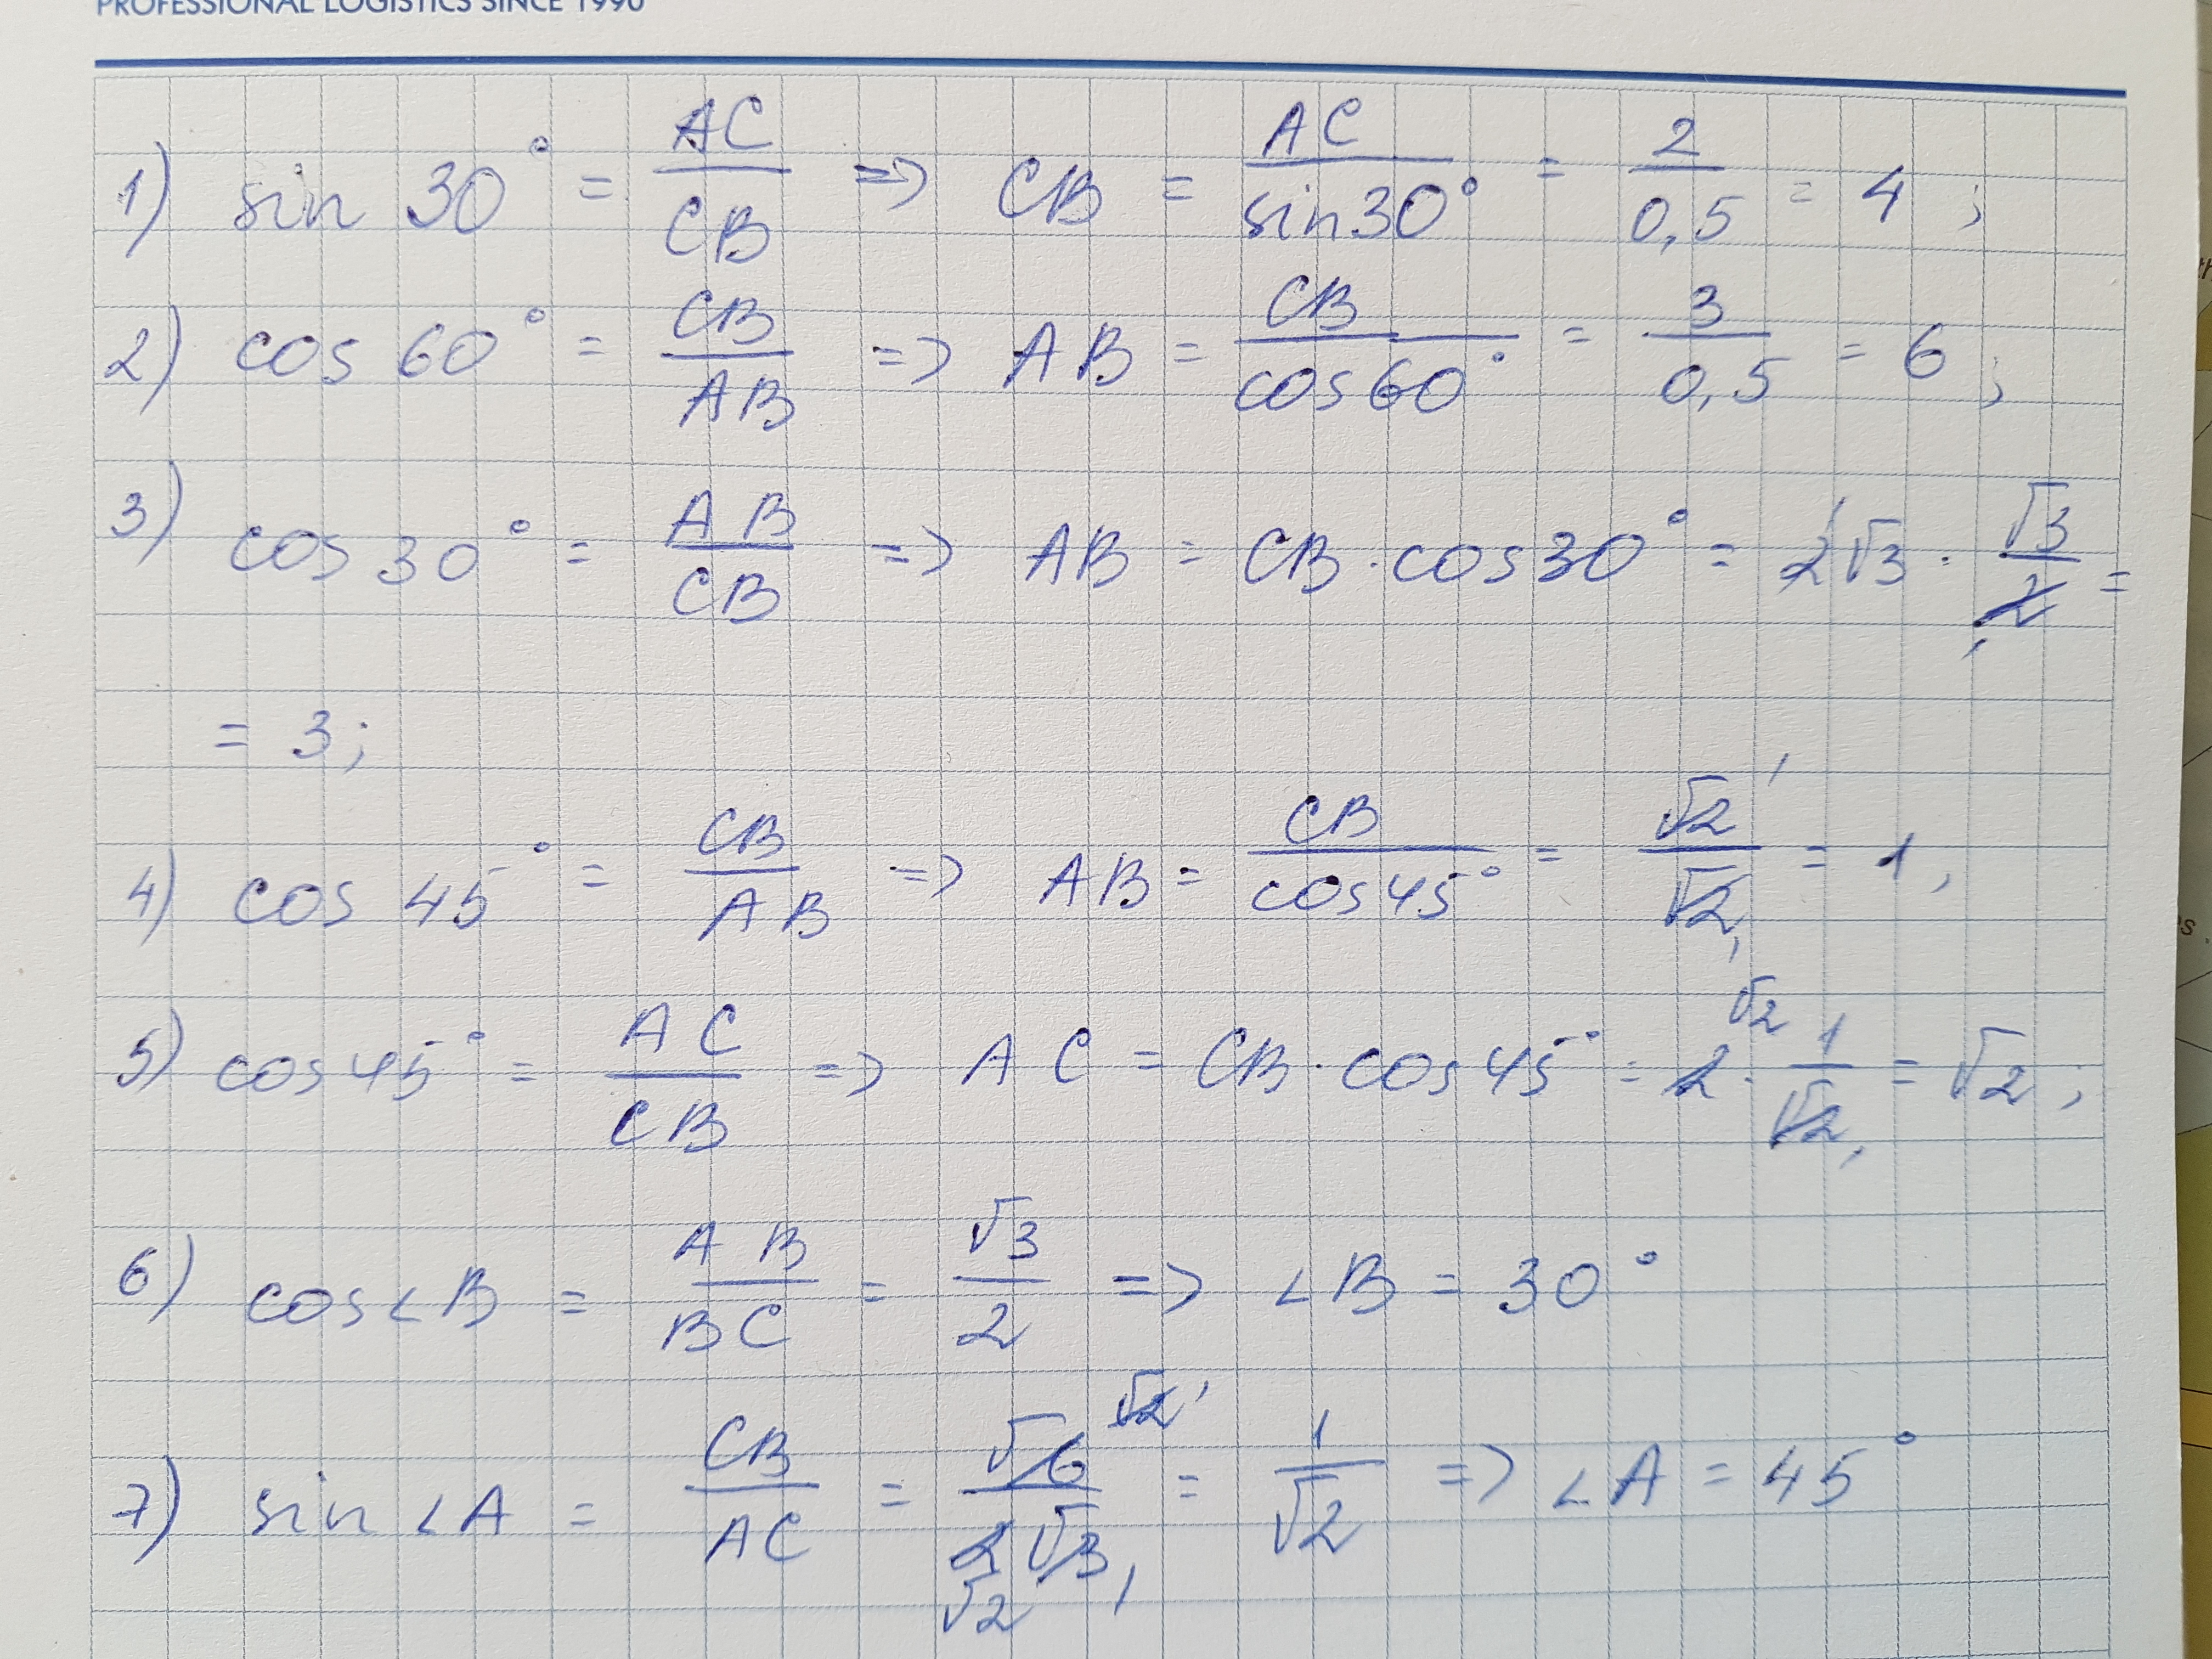 PROFESSIONAL LOGISTICS SINCE 1990
1) sin 30° = AC/CB => CB = AC/sin30° = 2/0,5 = 4;
2) cos 60° = CB/AB => AB = CB/cos60° = 3/0,5 = 6;
3) cos 30° = AB/CB => AB = CB · cos30° = 2√3 · √3/2 =
= 3;
4) cos 45° = CB/AB => AB = CB/cos45° = √2/√2 = 1,
5) cos 45° = AC/CB => AC = CB · cos 45° = 2 · 1/√2 = √2;
6) cos∠B = AB/BC = √3/2 => ∠B = 30°
7) sin∠A = CB/AC = √6/2√3 = 1/√2 => ∠A = 45°